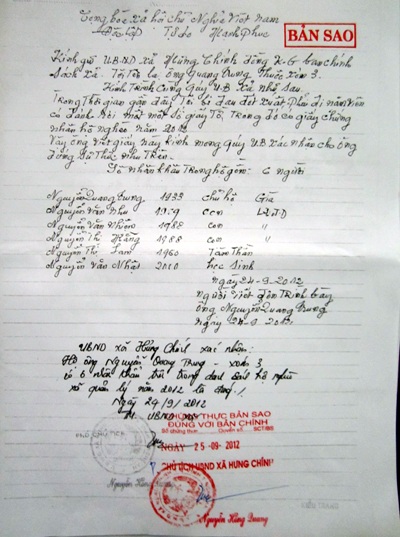 Cộng hòa xã hội chủ Nghĩa Việt nam
Độc lập Tự do Hạnh Phúc
BẢN SAO
Kính gửi UBND xã Hưng Chính đồng K-G ban chính
Sách xã. Tôi Tên là ông Quang Trung Thuộc xóm 3.
Kính Trình Cùng Quý U.B. Xã Như Sau.
Trong Thời gian gần đây Tôi bị đau đột xuất Phải đi nằm viện
có đánh Rơi mất một số giấy Tờ, Trong đó có giấy chứng
nhận hộ nghèo năm 2012
Vậy ông viết giấy này Kính mong Quý U.B xác nhận cho ông
đúng Sự Thực như Trên.
Số nhân khẩu Trong hộ gồm: 6 người
Nguyễn Quang Trung 1933 chủ hộ Già
Nguyễn văn Như 1959 con
Nguyễn Văn 1988 con "
Nguyễn Thị Hằng 1988 con "
Nguyễn Thị Lam 1960 Tâm Thần
Nguyễn văn Nhật 2010 học Sinh
ngày 24-9-2012
Người Viết đơn Trình bày
ông Nguyễn Quang Trung
ngày 24-9-2012
UBND xã Hưng Chính xác nhận:
Hộ ông Nguyễn Quang Trung - xóm 3
có 6 nhân khẩu trong danh sách hộ nghèo
xã quản lý năm 2012 là đúng./.
Ngày 24/9/2012
TM UBND xã
CHỨNG THỰC BẢN SAO
ĐÚNG VỚI BẢN CHÍNH
Số chứng thực Quyển số SCT/BS
NGÀY 25-09-2012
PHÓ CHỦ TỊCH
CHỦ TỊCH UBND XÃ HƯNG CHÍNH
Nguyễn Hùng
Nguyễn Hồng Dương